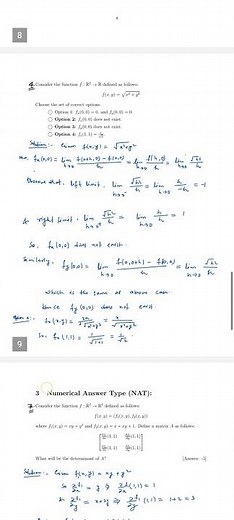 8
4. Consider the function f : R² → R defined as follows:
f(x, y) = √(x² + y²)
Choose the set of correct options.
Option 1: fₓ(0, 0) = 0, and f_y(0, 0) = 0
Option 2: fₓ(0, 0) does not exist.
Option 3: f_y(0, 0) does not exist.
Option 4: fₓ(1, 1) = 1/√2
Solution:- Given f(x,y) = √(x²+y²)
fₓ(0,0) = lim h→0 (f(0+h,0) - f(0,0))/h = lim h→0 f(h,0)/h = lim h→0 √h²/h
Observe that, left limit, lim h→0⁻ √h²/h = lim h→0 -h/h = -1
& right limit, lim h→0⁺ √h²/h = lim h→0 h/h = 1
So, fₓ(0,0) does not exist.
Similarly, f_y(0,0) = lim h→0 (f(0,0+h) - f(0,0))/h = lim h→0 √h²/h
which is the same as above case.
Hence f_y(0,0) does not exist
fₓ(x,y) = 2x/2√(x²+y²) = x/√(x²+y²)
So, fₓ(1,1) = 1/√(1+1) = 1/√2
9
3 Numerical Answer Type (NAT):
7. Consider the function f : R² → R² defined as follows:
f(x, y) = (f₁(x, y), f₂(x, y))
where f₁(x, y) = xy + y² and f₂(x, y) = x + xy + 1. Define a matrix A as follows:
What will be the determinant of A? [Answer: -5]
Solution:- Given f₁(x,y) = xy + y²
So ∂f₁/∂x = y ⇒ ∂f₁/∂x (1,1) = 1
& ∂f₁/∂y = x+2y ⇒ ∂f₁/∂y (1,1) = 1+2 = 3